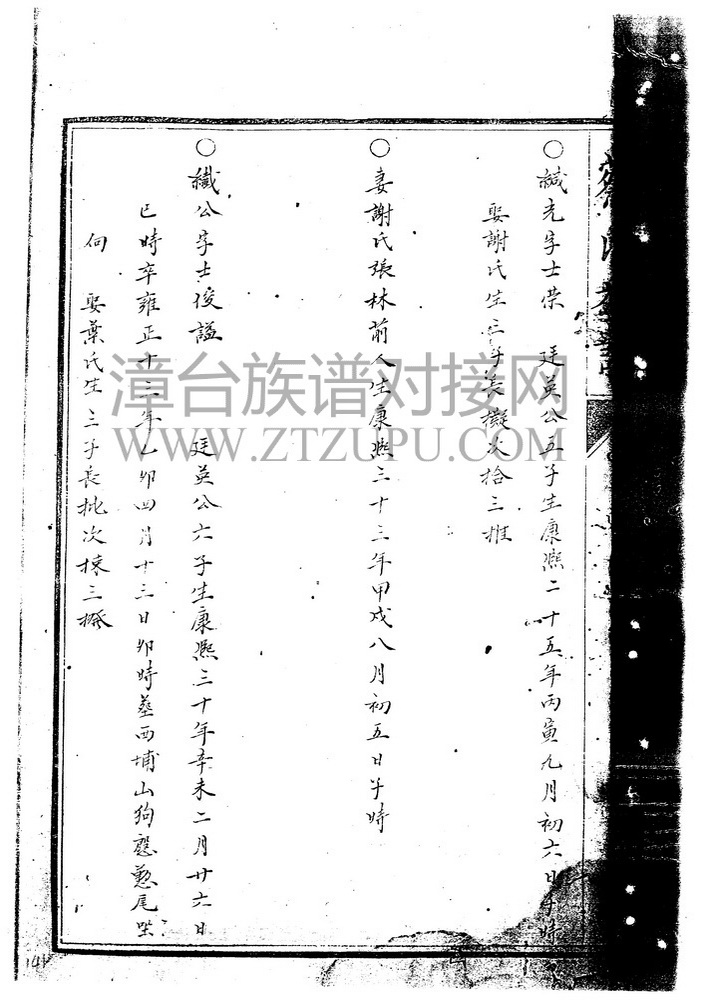 ○緘允字士荣 廷英公五子生康熙二十五年丙寅九月初六日子時
娶謝氏生三子長擬次拾三推
○妻謝氏張林前人生康熙三十三年甲戌八月初五日子時
○緎公字士俊謚 廷英公六子生康熙三十年辛未二月廿六日
巳時卒雍正十三年乙卯四月十三日卯時墓西埔山狗尾坐
向 娶葉氏生三子長批次揀三撥
漳台族谱对接网
WWW.ZTZUPU.COM
141